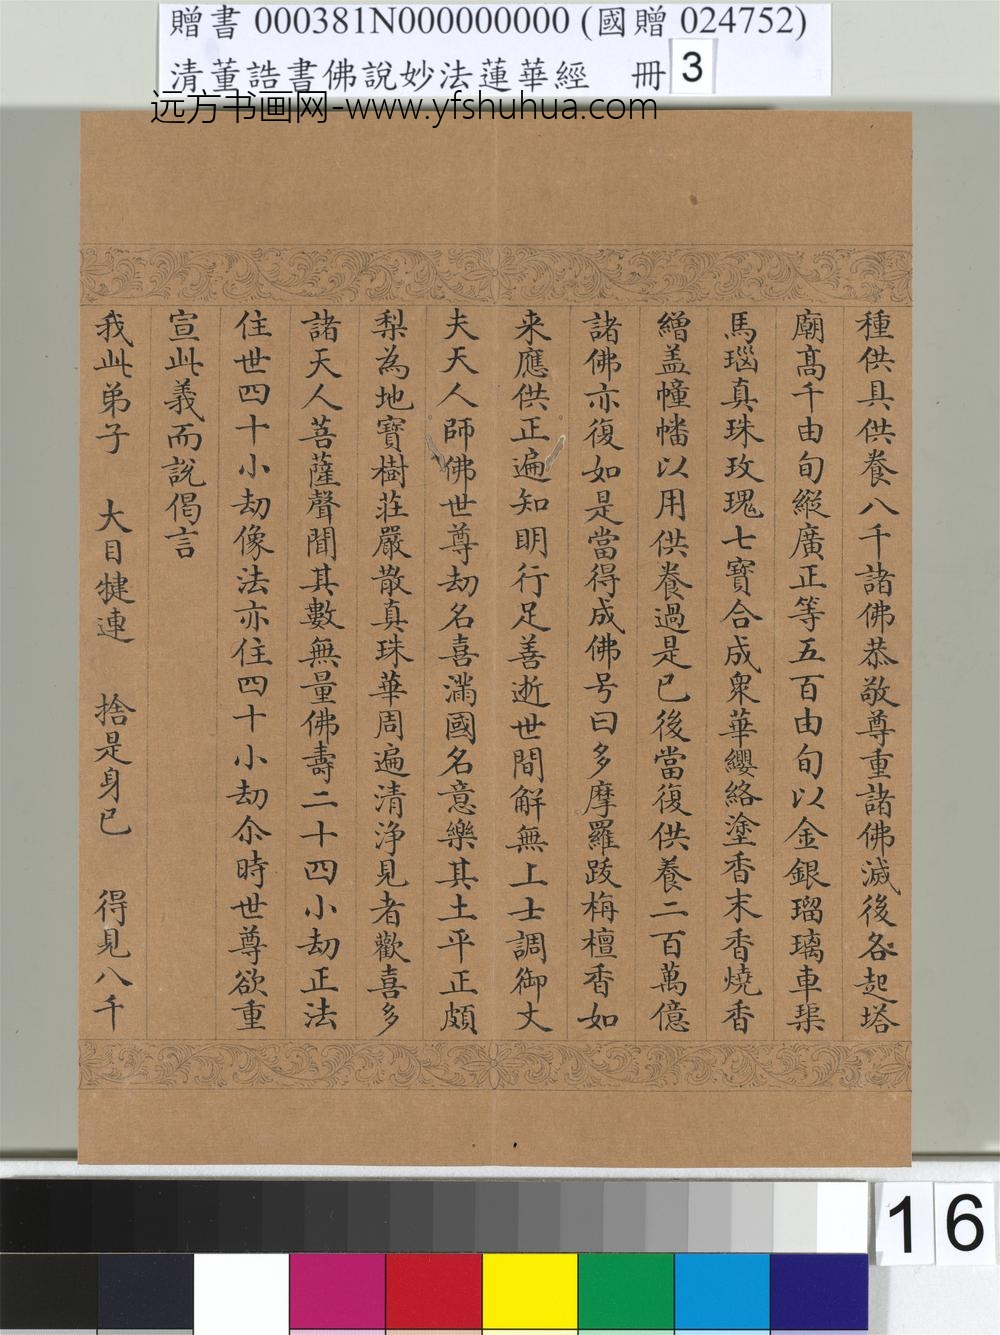 贈書 000381N000000000 (國贈 024752)
清董誥書佛說妙法蓮華經 冊 3
远方书画网-www.yfshuhua.com
種供具供養八千諸佛恭敬尊重諸佛滅後各起塔
廟髙千由旬縱廣正等五百由旬以金銀瑠璃車璖
馬瑙真珠玫瑰七寶合成衆華纓絡塗香末香燒香
繒盖幢幡以用供養過是已後當復供養二百萬億
諸佛亦復如是當得成佛号曰多摩羅跋栴檀香如
来應供正遍知明行足善逝世間解無上士調御丈
夫天人師佛世尊劫名喜滿國名意樂其土平正頗
梨為地寶樹莊嚴散真珠華周遍清淨見者歡喜多
諸天人菩薩聲聞其數無量佛壽二十四小劫正法
住世四十小劫像法亦住四十小劫尒時世尊欲重
宣此義而說偈言
我此弟子 大目犍連 捨是身已 得見八千
16